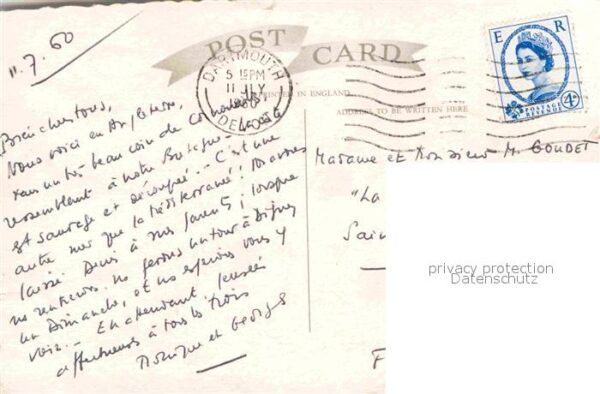 11.7.60
POST CARD
PRINTED IN ENGLAND
ADDRESS TO BE WRITTEN HERE
DARTMOUTH
5 15 PM
11 JLY
DEVON
E R
POSTAGE
REVENUE
4D
Bien chers tous,
Nous voici en Angleterre,
dans un très beau coin de
ressemblant à notre Bretagne - C'est une
est sauvage et découpée. -
autre mer que la Méditerranée!
laissé Denis à mes parents; lorsque
nous rentrerons nous ferons un tour à Digne
un Dimanche, et nous espérons vous y
voir. - En attendant, pensées
affectueuses à tous les trois
Monique et Georges
Madame et Monsieur M. GOUDET
"La
Sain
F
privacy protection
Datenschutz